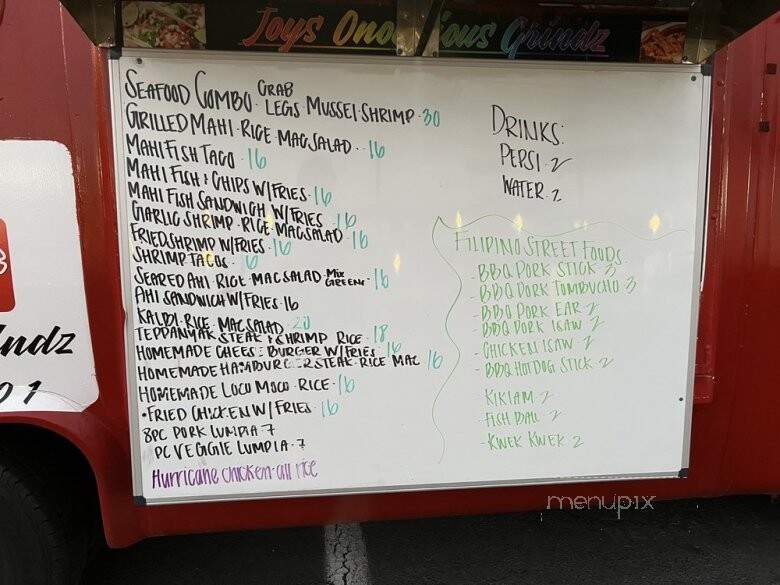 Joys Ono Grindz
SEAFOOD COMBO CRAB LEGS MUSSEL SHRIMP 30
GRILLED MAHI RICE MACSALAD 16
MAHI FISH TACO 16
MAHI FISH & CHIPS W/FRIES 16
MAHI FISH SANDWICH W/FRIES 16
GARLIC SHRIMP RICE MACSALAD 16
FRIED SHRIMP W/FRIES 16
SHRIMP TACOS 16
SEARED AHI RICE MACSALAD MIX GREENS 16
AHI SANDWICH W/FRIES 16
KALBI RICE MACSALAD 20
TEPPANYAKI STEAK & SHRIMP RICE 18
HOMEMADE CHEESE BURGER W/FRIES 16
HOMEMADE HAMBURGER STEAK RICE MAC 16
HOMEMADE LOCO MOCO RICE 16
•FRIED CHICKEN W/ FRIES 16
8PC PORK LUMPIA 7
PC VEGGIE LUMPIA 7
Hurricane chicken rice
DRINKS:
PEPSI 2
WATER 2
FILIPINO STREET FOODS
- BBQ PORK STICK 3
- BBQ PORK TUMBUCHO 3
- BBQ PORK EAR 2
- BBQ PORK ISAW 2
- CHICKEN ISAW 2
- BBQ HOTDOG STICK 2
KIKIAM 2
- FISH BALL 2
- KWEK KWEK 2
ndz
01
menupix